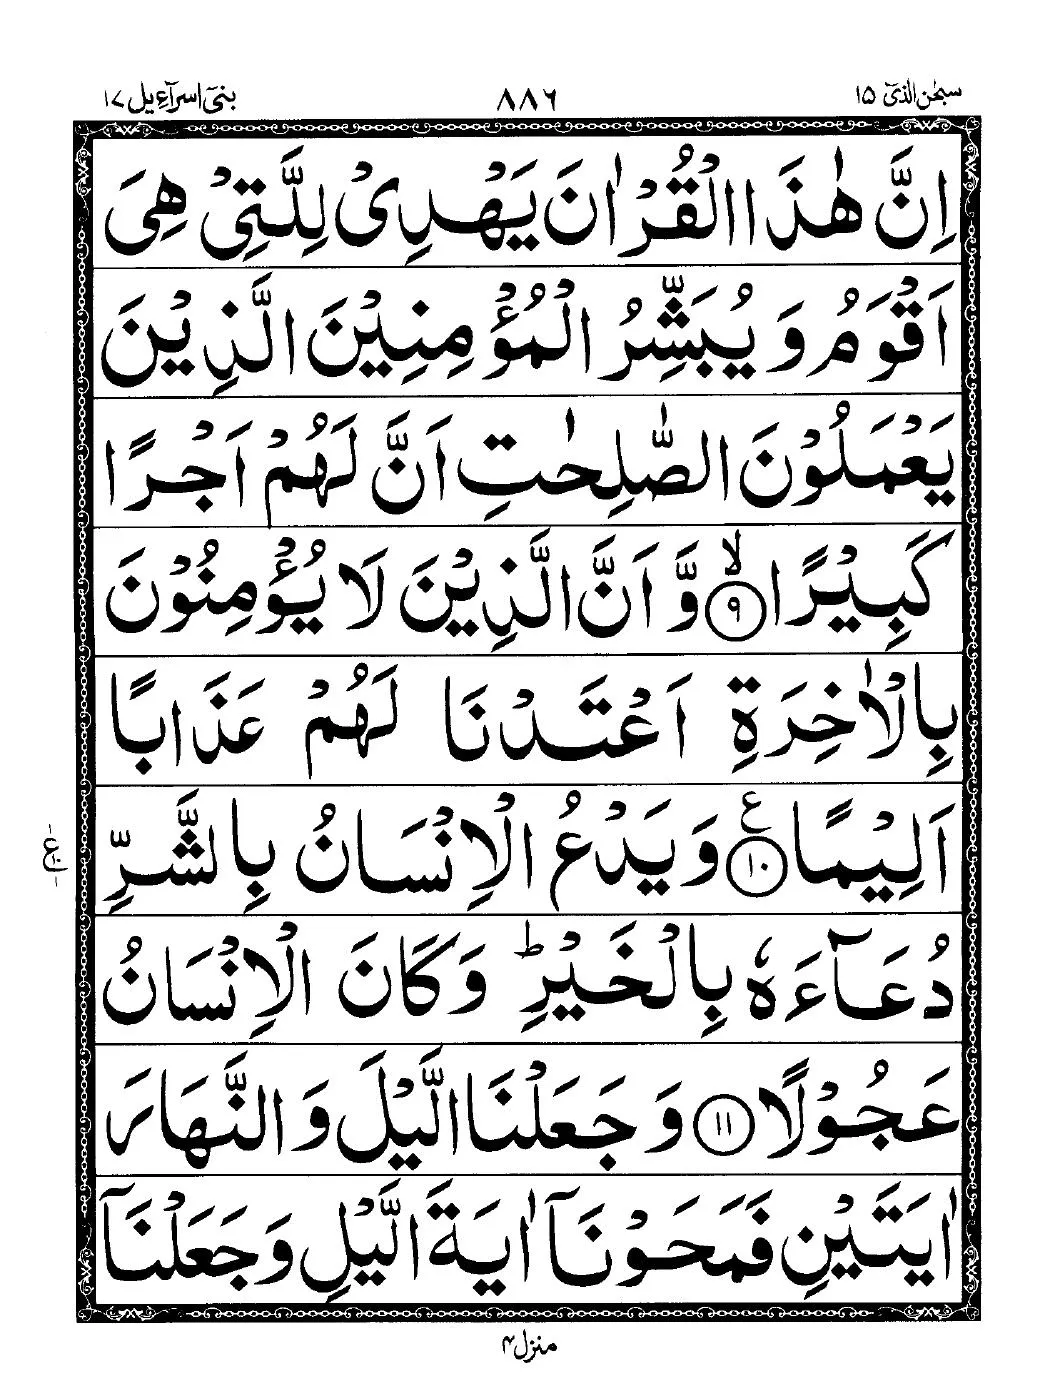 سبحٰن الذیٓ ١٥ ٨٨٦ بنیٓ اسرآءیل ١٧
اِنَّ هٰذَا الْقُرْاٰنَ يَهْدِىْ لِلَّتِىْ هِىَ
اَقْوَمُ وَيُبَشِّرُ الْمُؤْمِنِيْنَ الَّذِيْنَ
يَعْمَلُوْنَ الصّٰلِحٰتِ اَنَّ لَهُمْ اَجْرًا
كَبِيْرًا ۙ﴿٩﴾ وَّ اَنَّ الَّذِيْنَ لَا يُؤْمِنُوْنَ
بِالْاٰخِرَةِ اَعْتَدْنَا لَهُمْ عَذَابًا
اَلِيْمًا ﴿١٠﴾ ع وَيَدْعُ الْاِنْسَانُ بِالشَّرِّ
دُعَآءَهٗ بِالْخَيْرِ ؕ وَكَانَ الْاِنْسَانُ
عَجُوْلًا ﴿١١﴾ وَجَعَلْنَا الَّيْلَ وَالنَّهَارَ
اٰيَتَيْنِ فَمَحَوْنَاۤ اٰيَةَ الَّيْلِ وَجَعَلْنَاۤ
منزل ٤